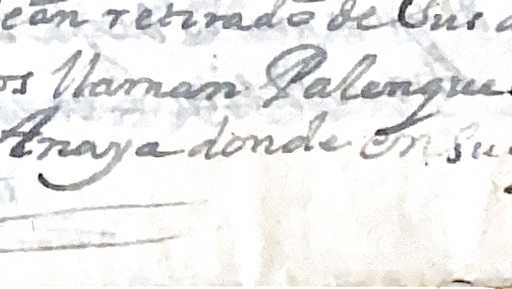 ean retirado de sus
os llaman Palenque
Anaya donde en su